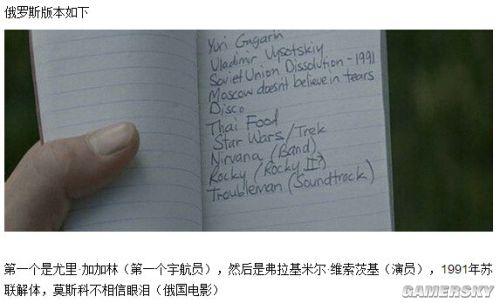 俄罗斯版本如下
Yuri Gagarin
Vladimir Vysotskiy
Soviet Union Dissolution - 1991
Moscow doesnt believe in tears
Disco
Thai Food
Star Wars/Trek
Nirvana (Band)
Rocky (Rocky II?)
Troubleman (Soundtrack)
第一个是尤里·加加林（第一个宇航员），然后是弗拉基米尔·维索茨基（演员），1991年苏
联解体，莫斯科不相信眼泪（俄国电影）
GAMERSKY